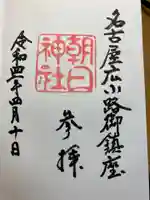 名古屋広小路御鎮座
参拝
朝日神社
令和四年四月十日